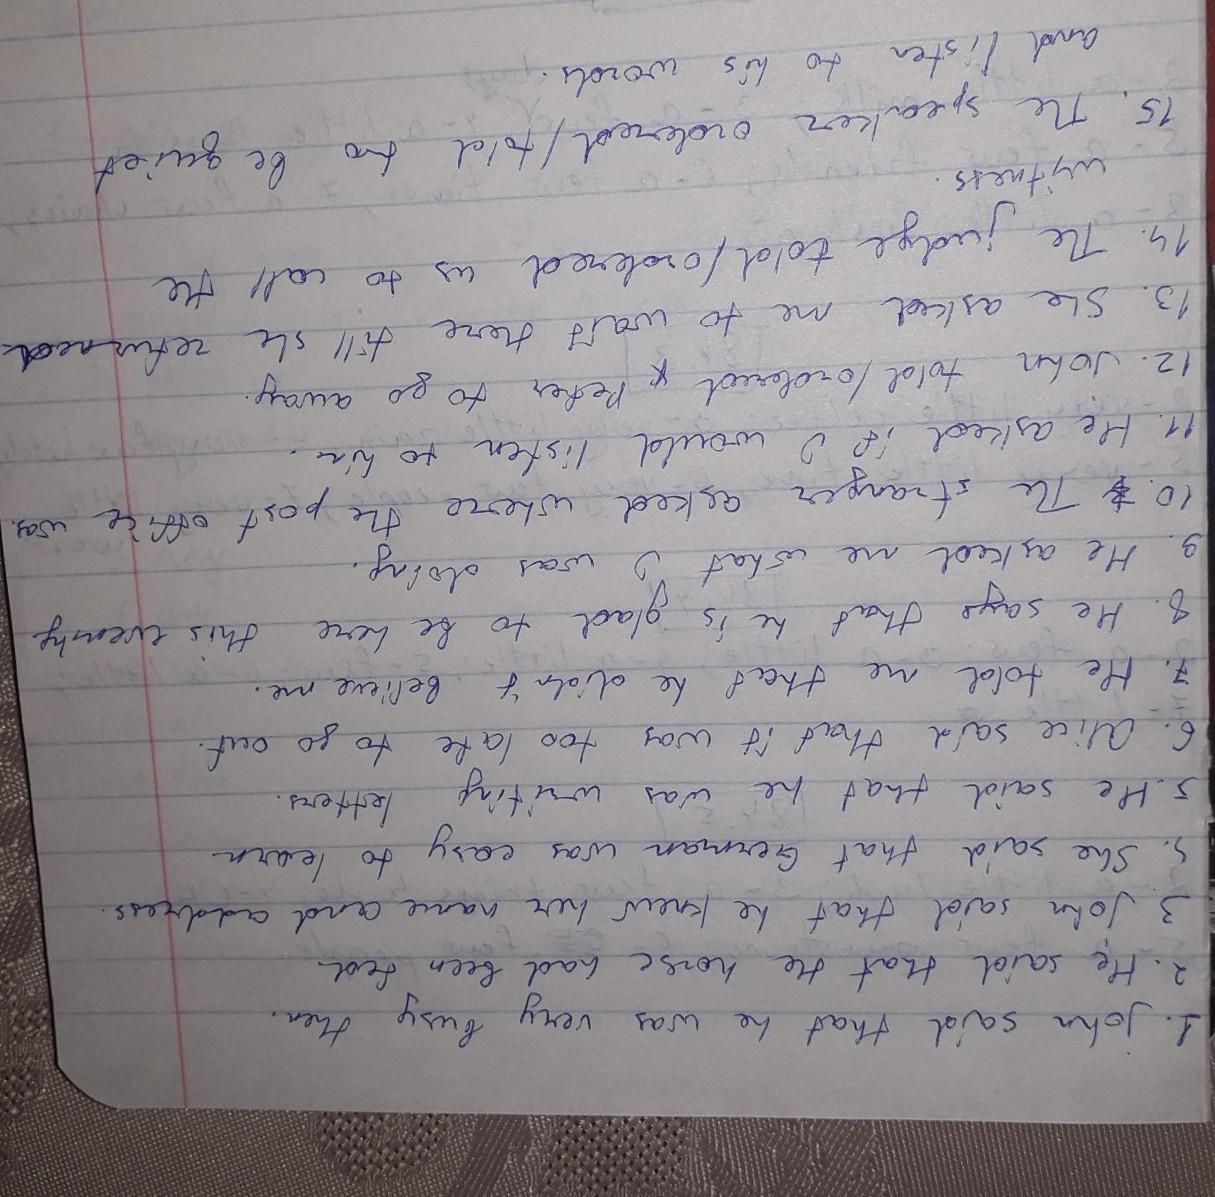 1. John said that he was very busy then.
2. He said that the horse had been fed.
3 John said that he knew her name and address.
5. She said that German was easy to learn
5. He said that he was writing letters.
6. Alice said that it was too late to go out.
7. He told me that he didn't believe me.
8. He says that he is glad to be here this evening.
9. He asked me what I was doing.
10. The stranger asked where the post office was.
11. He asked if I would listen to him.
12. John told/ordered Peter to go away.
13. She asked me to wait there till she returned.
14. The judge told/ordered us to call the
witness.
15. The speaker ordered/told to be quiet
and listen to his words.